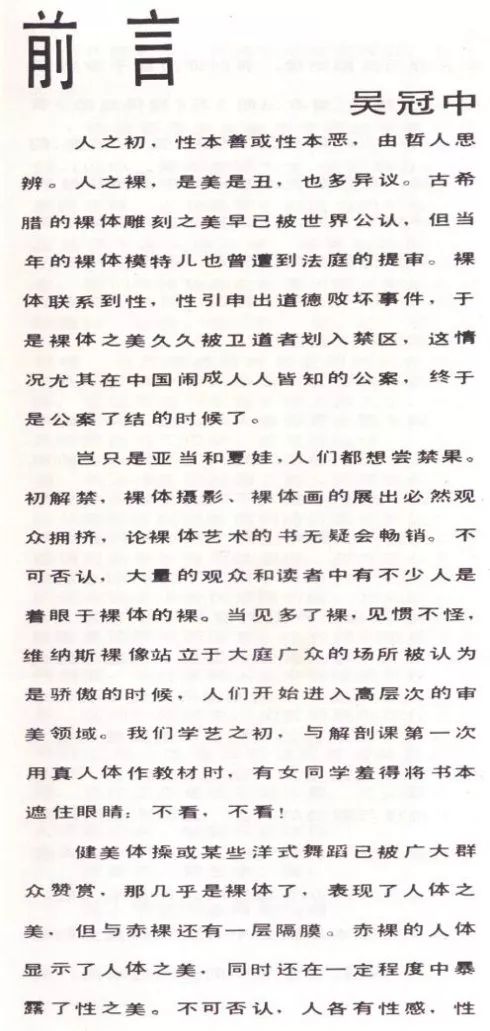 前言
吴冠中
人之初，性本善或性本恶，由哲人思
辨。人之裸，是美是丑，也多异议。古希
腊的裸体雕刻之美早已被世界公认，但当
年的裸体模特儿也曾遭到法庭的提审。裸
体联系到性，性引申出道德败坏事件，于
是裸体之美久久被卫道者划入禁区，这情
况尤其在中国闹成人人皆知的公案，终于
是公案了结的时候了。
岂只是亚当和夏娃，人们都想尝禁果。
初解禁，裸体摄影、裸体画的展出必然观
众拥挤，论裸体艺术的书无疑会畅销。不
可否认，大量的观众和读者中有不少人是
着眼于裸体的裸。当见多了裸，见惯不怪，
维纳斯裸像站立于大庭广众的场所被认为
是骄傲的时候，人们开始进入高层次的审
美领域。我们学艺之初，与解剖课第一次
用真人体作教材时，有女同学羞得将书本
遮住眼睛：不看，不看！
健美体操或某些洋式舞蹈已被广大群
众赞赏，那几乎是裸体了，表现了人体之
美，但与赤裸还有一层隔膜。赤裸的人体
显示了人体之美，同时还在一定程度中暴
露了性之美。不可否认，人各有性感，性